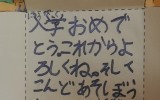 入学おめで
とう。これからよ
ろしくね。そして
こんどあそしぼう